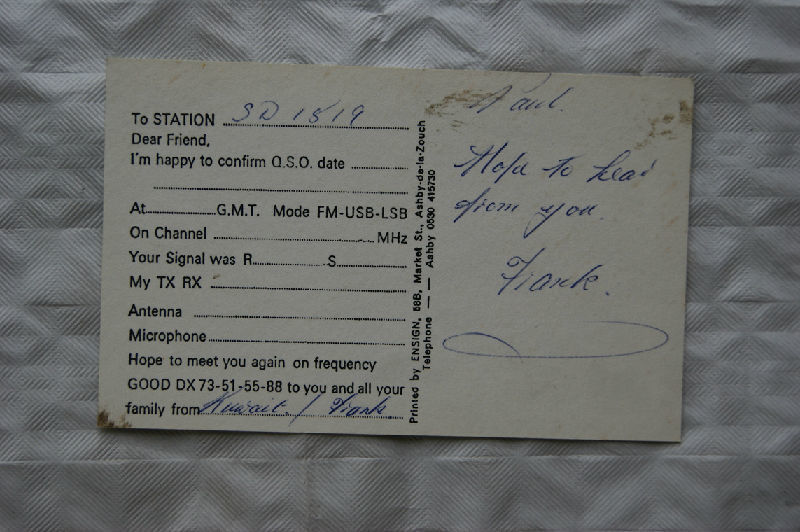 To STATION SD 1819
Dear Friend,
I'm happy to confirm Q.S.O. date
At G.M.T. Mode FM-USB-LSB
On Channel MHz
Your Signal was R S
My TX RX
Antenna
Microphone
Hope to meet you again on frequency
GOOD DX 73-51-55-88 to you and all your
family from Kuwait. / Frank
Printed by ENSIGN, 58B, Market St., Ashby-de-la-Zouch
Telephone — — Ashby 0530 415730
Paul.
Hope to hear
from you.
Frank.